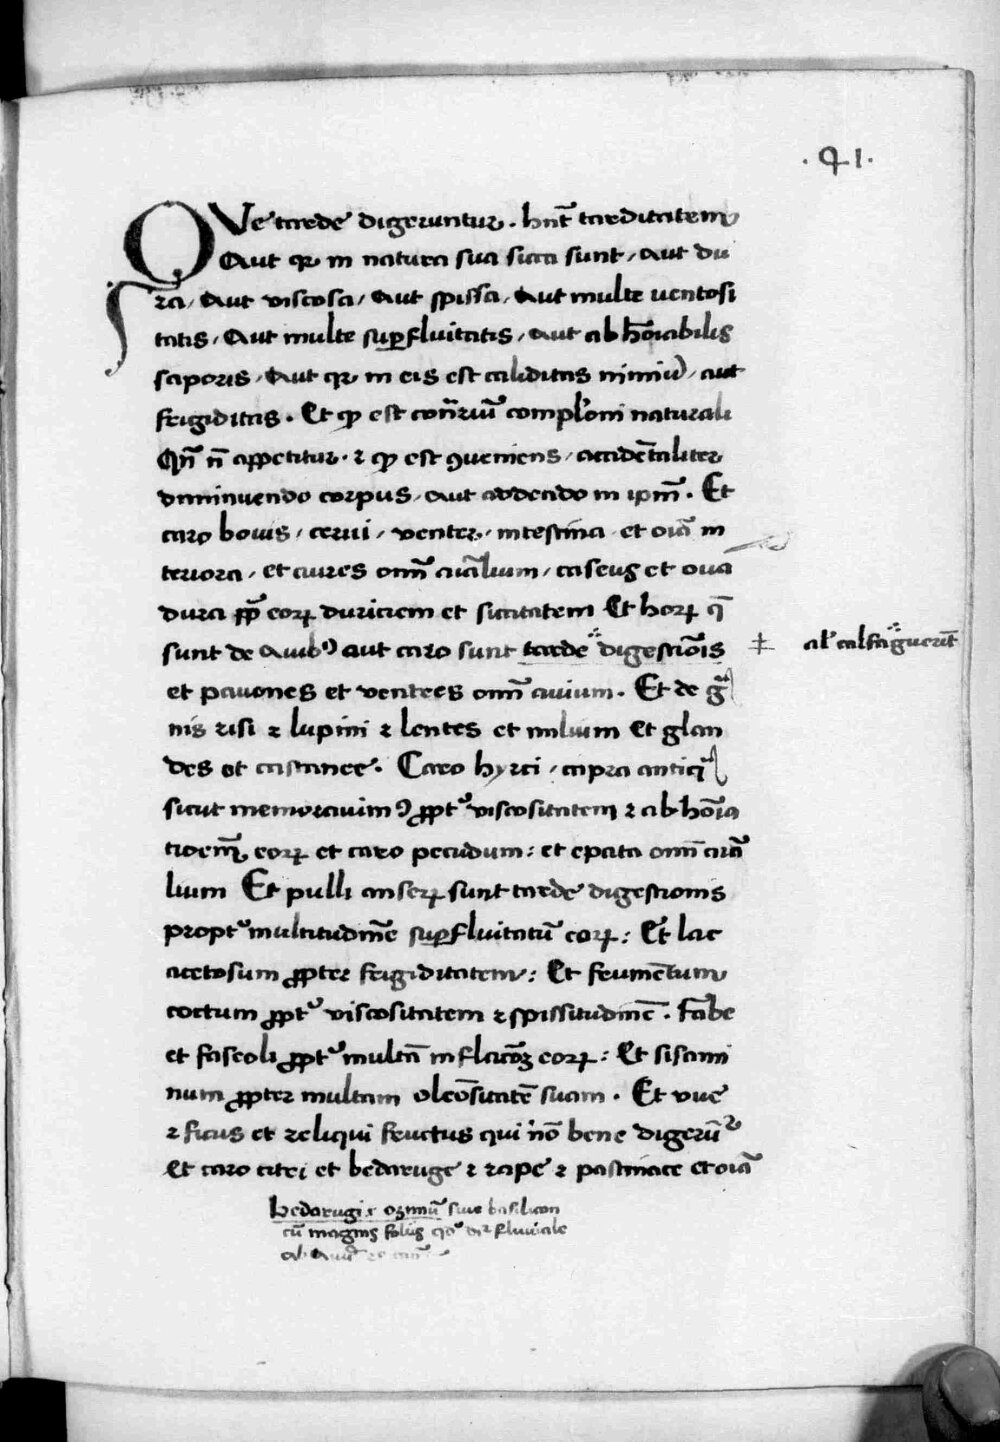 .41.
QVe tarde digeruntur. hnt̄ tarditatem
Aut qr in natura sua sicca sunt, aut du
ra, Aut viscosa, Aut spissa, Aut multe uentosi
tatis, Aut multe superfluitatis, aut abho͞iabilis
saporis, Aut qr in eis est caliditas nimiū, aut
frigiditas. Et qꝫ est cont̄riū compl'oni naturali
Qn̄ n̄ appetitur. ⁊ qꝫ est ꝯueniens, accidētaliter
diminuendo corpus, aut addendo in ip̄m. Et
caro bouis, cerui, venter, intestina, et oīa in
teriora, et aures oīm aīalium, caseus et oua
dura ꝓp̄ eorꝝ duriciem et siccitatem Et horꝝ q̄
sunt de auibꝰ aut caro sunt tarde digestiōis
al' calfaguerīt
et pauones et ventres oīm auium. Et de gͣ
nis risi ⁊ lupini ⁊ lentes et milium et glan
des et castanee. Caro hyrci, capra antiqͣ
sicut memorauimꝰ ꝓpt' viscositatem ⁊ abho͞ia
tioem̄ eorꝝ et caro pecudum: et epata oīm aīa
lium Et pulli anserꝝ sunt tarde digestionis
propt' multitudinē superfluitatū eorꝝ: Et lac
acetosum ꝓpter frigiditatem: Et frumētum
coctum ꝓpt' viscositatem ⁊ spissitudinē. Fabe
et faseoli ꝓpt' multā inflatōꝫ eorꝝ: Et sisami
num ꝓpter multam oleōsitatē suam. Et vue
⁊ ficus et reliqui fructus qui nō bene digerūr
Et caro citri et bedaruge ⁊ rape ⁊ pastinace et oīa
bedarugi. ozimū siue basilicon
cū magnis foliis qd' dr fluuiale